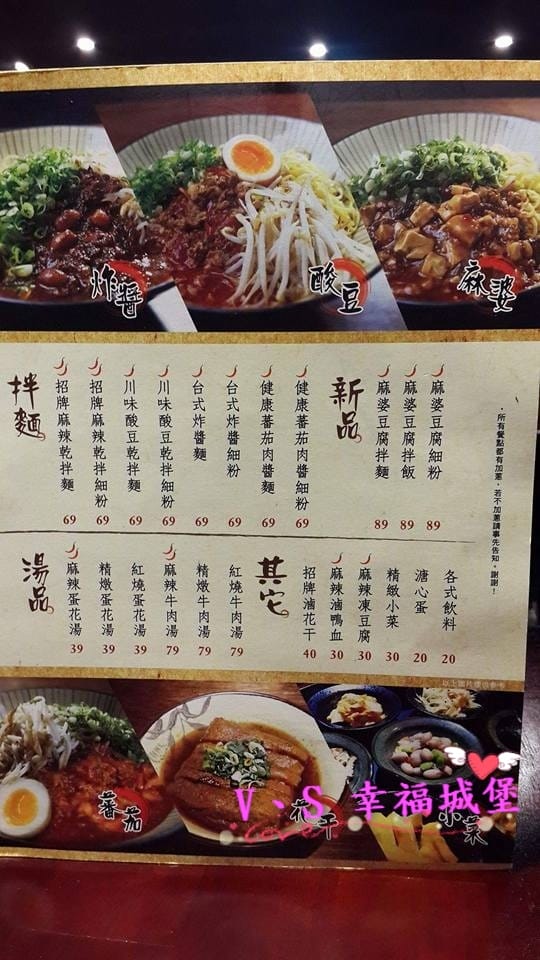 炸醬
酸豆
麻婆
拌麵
招牌麻辣乾拌麵 69
招牌麻辣乾拌細粉 69
川味酸豆乾拌麵 69
川味酸豆乾拌細粉 69
台式炸醬麵 69
台式炸醬細粉 69
健康蕃茄肉醬麵 69
健康蕃茄肉醬細粉 69
新品
麻婆豆腐拌麵 89
麻婆豆腐拌飯 89
麻婆豆腐細粉 89
·所有餐點都有加蔥，若不加蔥請事先告知，謝謝！
湯品
麻辣蛋花湯 39
精燉蛋花湯 39
紅燒蛋花湯 39
麻辣牛肉湯 79
精燉牛肉湯 79
紅燒牛肉湯 79
其它
招牌滷花干 40
麻辣滷鴨血 30
麻辣凍豆腐 30
精緻小菜 30
溏心蛋 20
各式飲料 20
以上圖片僅供參考
蕃茄
花干
小菜
V、S 幸福城堡